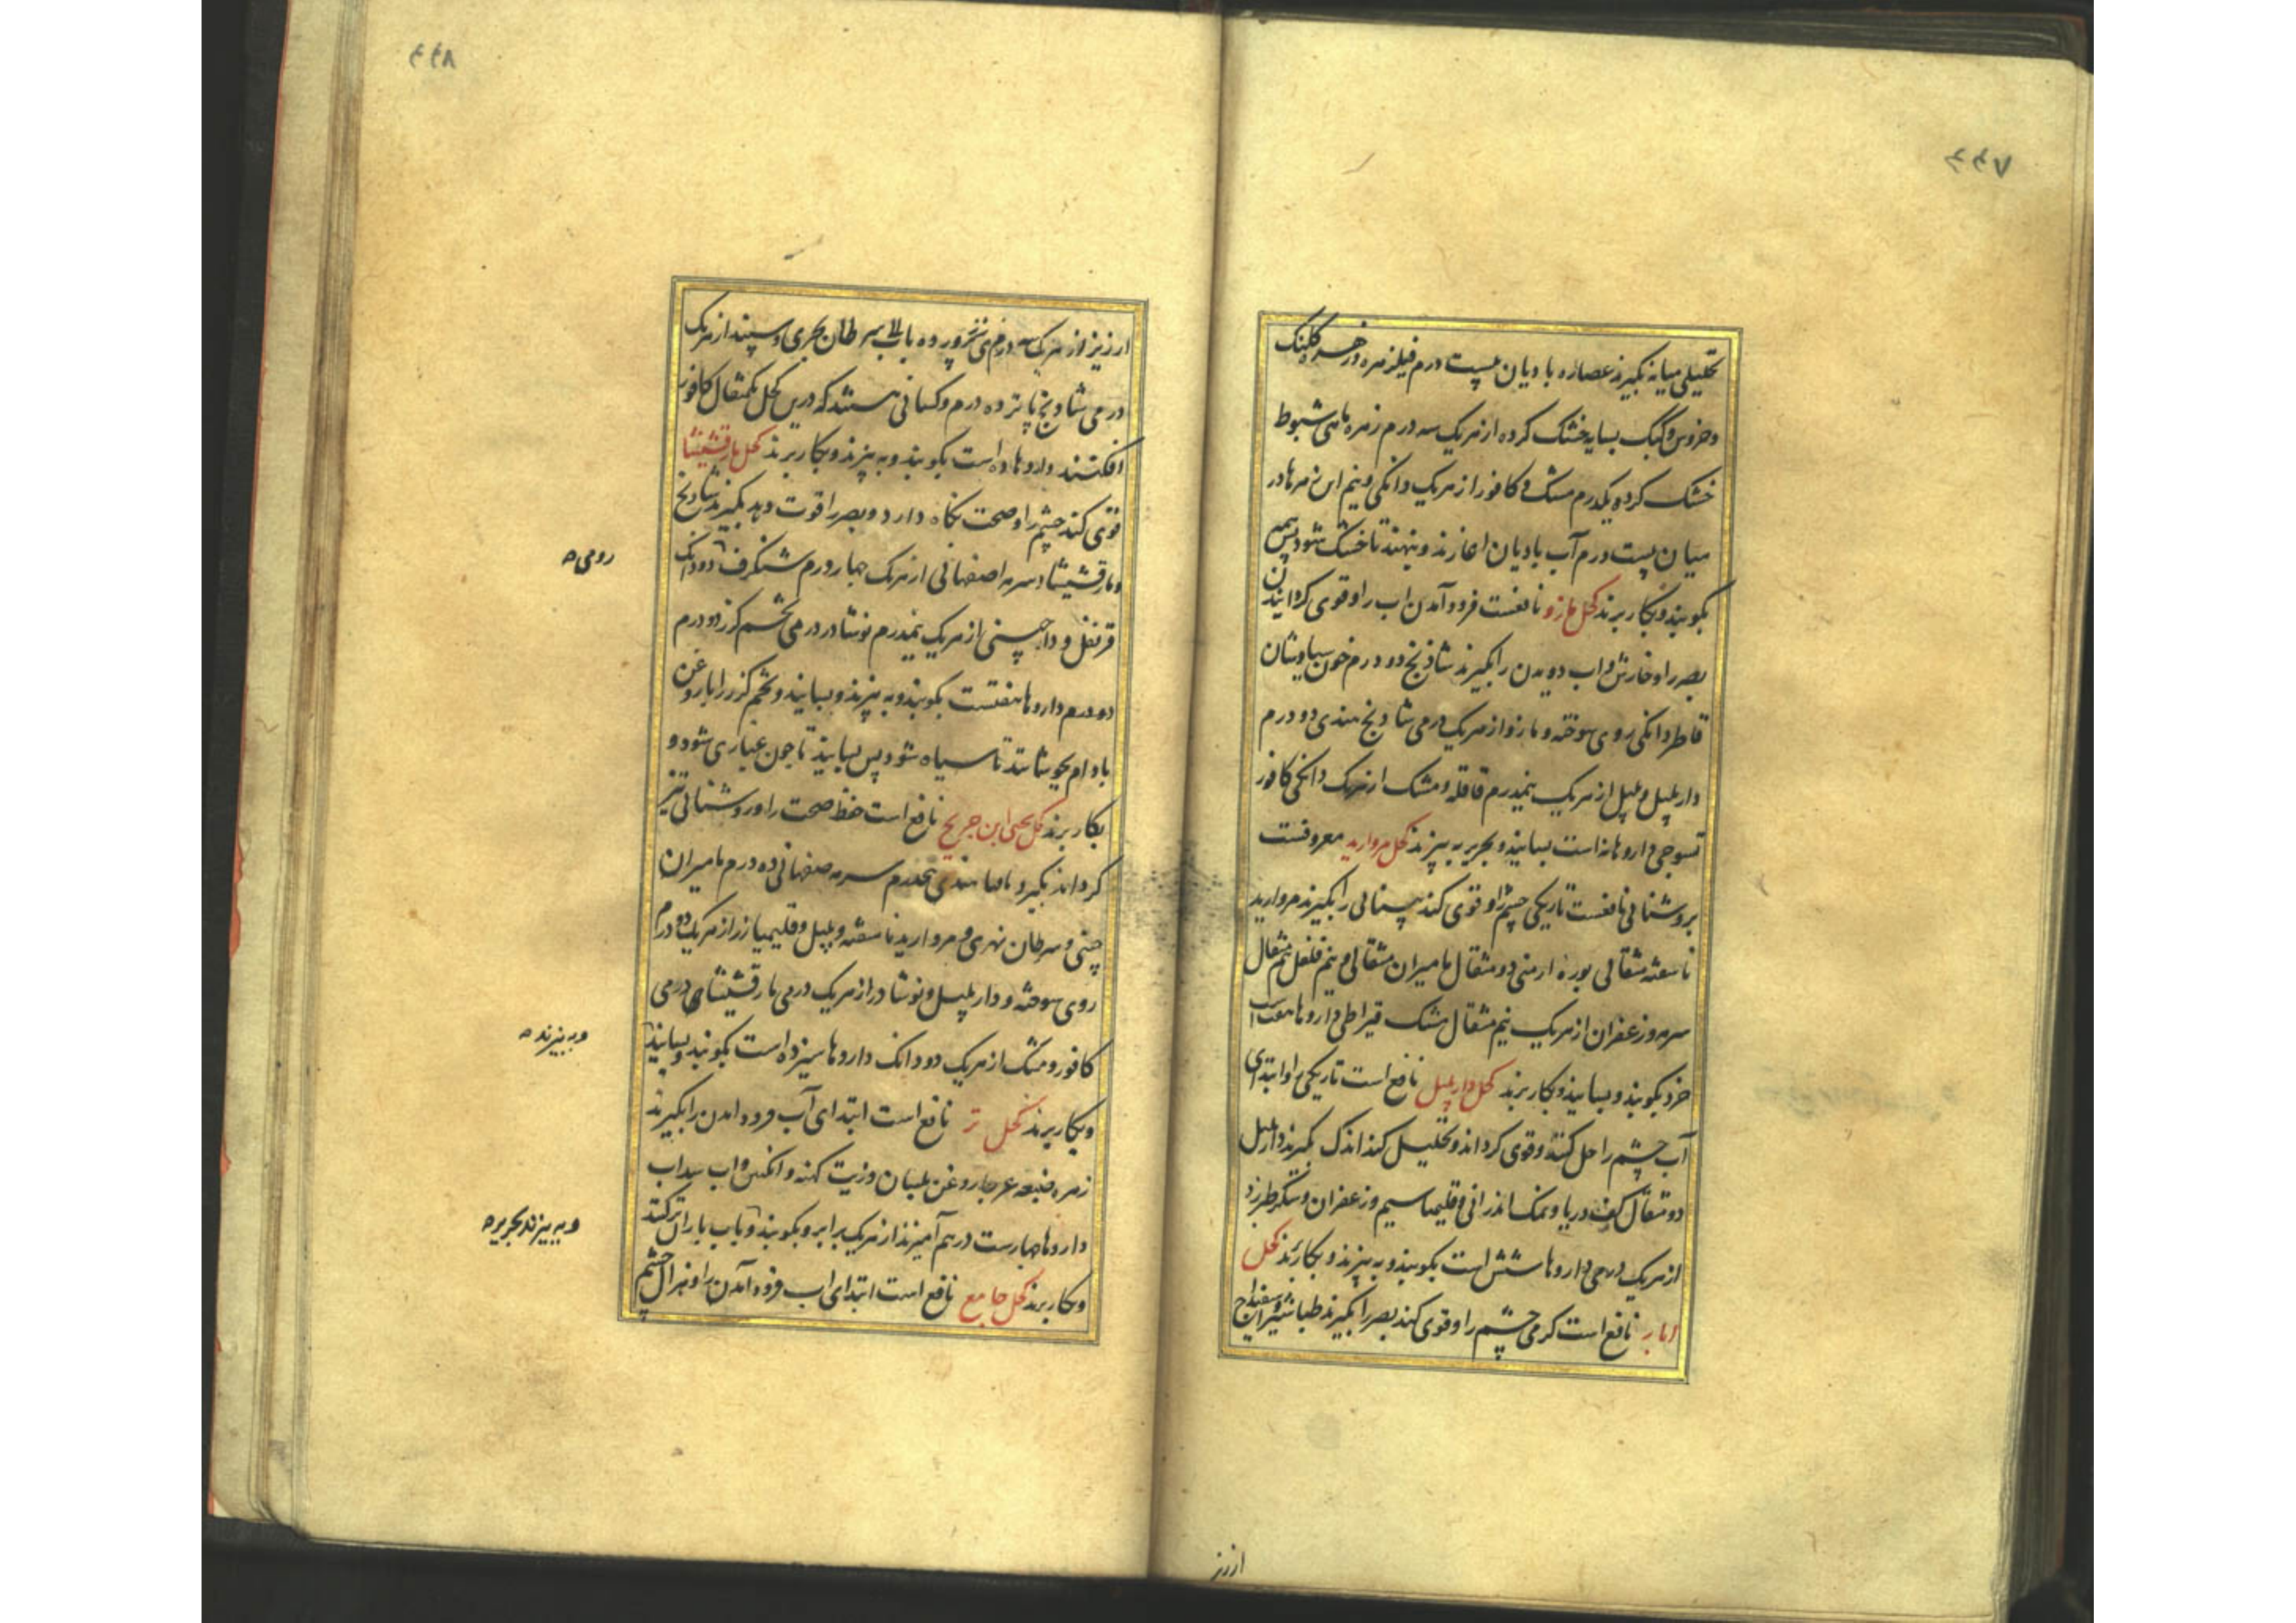 ۴۴۷
تحلیلی میانه بگیرند عصاره بادیان بیست درم فیلزهره و زهره کلنک
و خروس و کبک بسایه خشک کرده از هریک سه درم زهره ماهی شبوط
خشک کرده یکدرم مشک و کافور از هریک دانکی و نیم این زهرها در
میان بیست درم آب بادیان اغارند و بنهند تا خشک شود پس همه
بکوبند و بکار برند کحل مازو نافعست فرود آمدن اب را و قوی کردانیدن
بصر را و خارش و اب دویدن را بگیرند شاذنج دو درم خون سیاوشان
قاطر دانکی روی سوخته و مازو از هریک درمی شادنج هندی دو درم
دارپلپل و پلپل از هریک نیمدرم قاقله و مشک از هریک دانکی کافور
تسوجی داروها نه است بسایند و بحریر به بیزند کحل مروارید معروفست
بروشنائی نافعست تاریکی چشم را و قوی کند بینائی را بگیرند مروارید
ناسفته مثقالی بوره ارمنی دو مثقال مامیران مثقالی و نیم فلفل نیم مثقال
سرمه و زعفران از هریک نیم مثقال مشک قیراطی داروها هفت است
خرد بکوبند و بسایند و بکار برند کحل دارپلپل نافع است تاریکی را و ابتدای
آب چشم را حل کند و قوی کرداند و تحلیل کند اندک بگیرند دارپلپل
دو مثقال کف دریا و نمک اندرانی و قلیمیا سیم و زعفران و شکر طبرزد
از هریک درمی داروها شش است بکوبند و به بیزند و بکار برند کحل
ابار نافع است کرمی چشم را و قوی کند بصر را بگیرند طباشیر و اسفیداج
ارزیز
۴۴۸
ارزیز از هریک سه درم توتی پرورده باب سرطان بحری و سپند از هریک
درمی شادنج پانزده درم و کسانی هستند که درین کحل یکمثقال کافور
افکنند داروها ده است بکوبند و به بیزند و بکار برند کحل مارقشیشا
قوی کند چشم را و صحت نکاه دارد و بصر را قوت دهد بگیرند شادنج
و مارقشیشا و سرمه اصفهانی از هریک چهار درم شنکرف دو دانک
رومی
قرنفل و دارچینی از هریک نیمدرم نوشادر درمی تخم کزر دو درم
دو درم داروها هفتست بکوبند و به بیزند و بسایند و تخم کزر را با روغن
بادام بجوشانند تا سیاه شود پس بسایند تا چون غباری شود و
بکار برند کحل یحیی ابن جریج نافع است حفظ صحت را و روشنائی تیز
کرداند بگیرند مامیثا هندی پنجدرم سرمه صفهانی ده درم مامیران
چینی و سرطان نهری و مروارید ناسفته و پلپل و قلیمیا زر از هریک دو درم
روی سوخته و دارپلپل و نوشادر از هریک درمی مارقشیشای درمی
کافور و مشک از هریک دو دانک داروها سیزده است بکوبند و بسایند
و به بیزند
و بکار برند کحل تر نافع است ابتدای آب فرود امدن را بگیرند
زهره ضبعه عرجا روغن بلسان و زیت کهنه و انکبین و اب سداب
داروها چهارست درهم آمیزند از هریک برابر و بکوبند و باب باران تر کنند
و به بیزند بحریر
و بکار برند کحل جامع نافع است ابتدای اب فرود آمدن را و نزال چشم